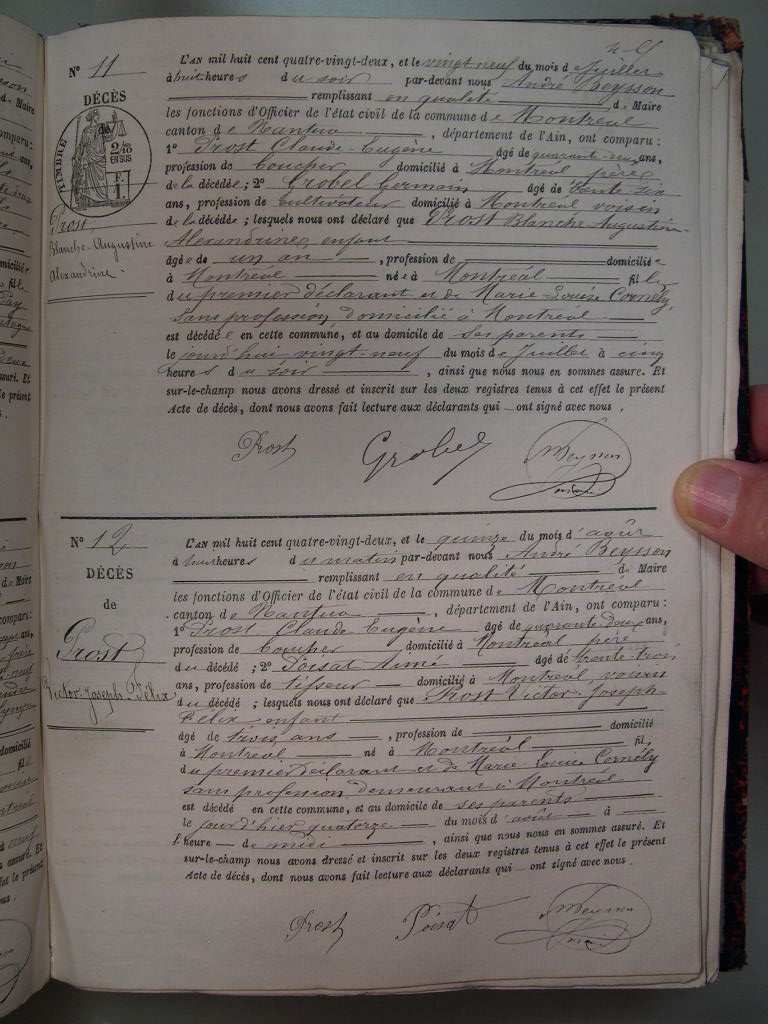 N° 11
DÉCÈS
de
TIMBRE
2/10 EN SUS
Prost
Blanche-Augustine
Alexandrine.
L'AN mil huit cent quatre-vingt-deux, et le vingt neuf du mois de Juillet
à huit heures du soir par-devant nous André Beysson
remplissant en qualité de Maire
les fonctions d'Officier de l'état civil de la commune de Montréal
canton de Nantua, département de l'Ain, ont comparu :
1° Prost Claude-Eugène âgé de quarante-deux ans,
profession de Coucher domicilié à Montréal père
de la décédée ; 2° Grobel Germain âgé de trente six
ans, profession de Cultivateur domicilié à Montréal voisin
de la décédée ; lesquels nous ont déclaré que Prost Blanche Augustine
Alexandrine, enfant
âgée de un an, profession de domiciliée
à Montréal née à Montréal fille
du premier déclarant et de Marie Louise Cornély
sans profession, domicilié à Montréal
est décédée en cette commune, et au domicile de ses parents
le jourd'hui vingt-neuf du mois de Juillet à cinq
heures du soir, ainsi que nous nous en sommes assuré. Et
sur-le-champ nous avons dressé et inscrit sur les deux registres tenus à cet effet le présent
Acte de décès, dont nous avons fait lecture aux déclarants qui ont signé avec nous.
Prost Grobel Beysson
N° 12
DÉCÈS
de
Prost
Victor Joseph Félix
L'AN mil huit cent quatre-vingt-deux, et le quinze du mois d'août
à huit heures du matin par-devant nous André Beysson
remplissant en qualité de Maire
les fonctions d'Officier de l'état civil de la commune de Montréal
canton de Nantua, département de l'Ain, ont comparu :
1° Prost Claude Eugène âgé de quarante deux ans,
profession de Coucher domicilié à Montréal père
du décédé ; 2° Poisat Aimé âgé de trente-trois
ans, profession de tisseur domicilié à Montréal, voisin
du décédé ; lesquels nous ont déclaré que Prost Victor-Joseph-
Félix, enfant
âgé de trois ans, profession de domicilié
à Montréal né à Montréal fils
du premier déclarant et de Marie-Louise Cornély
sans profession demeurant à Montréal
est décédé en cette commune, et au domicile de ses parents
le jour d'hier quatorze du mois d'août à
l'heure de midi, ainsi que nous nous en sommes assuré. Et
sur-le-champ nous avons dressé et inscrit sur les deux registres tenus à cet effet le présent
Acte de décès, dont nous avons fait lecture aux déclarants qui ont signé avec nous.
Prost Poisat Beysson